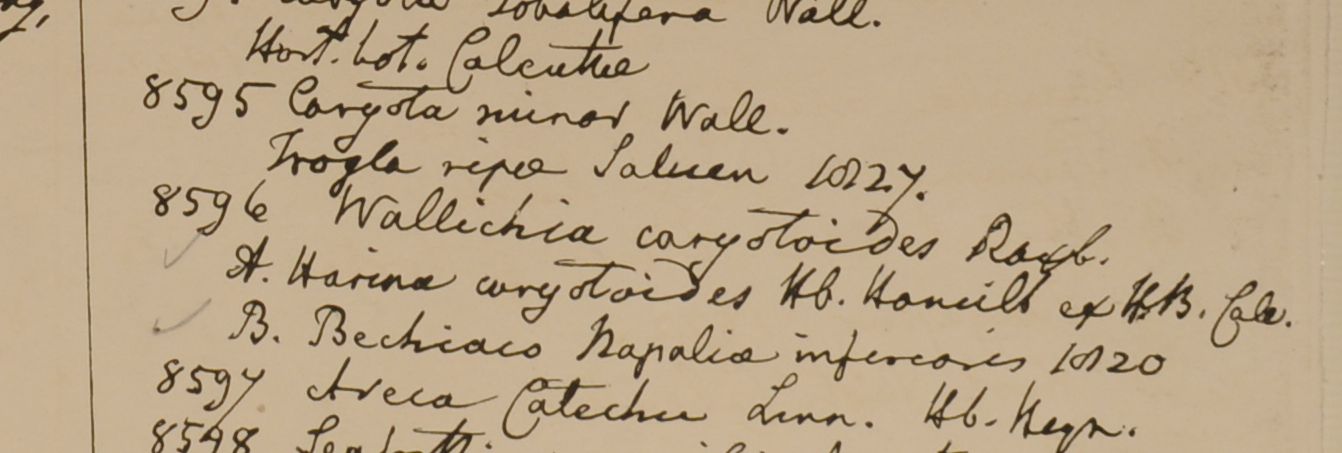 Caryota sobolifera Wall.
Hort. bot. Calcuttæ
8595 Caryota minor Wall.
Trogla ripæ Saluen 1827.
8596 Wallichia caryotoides Roxb.
A. Harina caryotoides Hb. Hamilt ex H.B. Calc.
B. Bechiaco Napaliæ inferioris 1820
8597 Areca Catechu Linn. Hb. Heyn.
8598